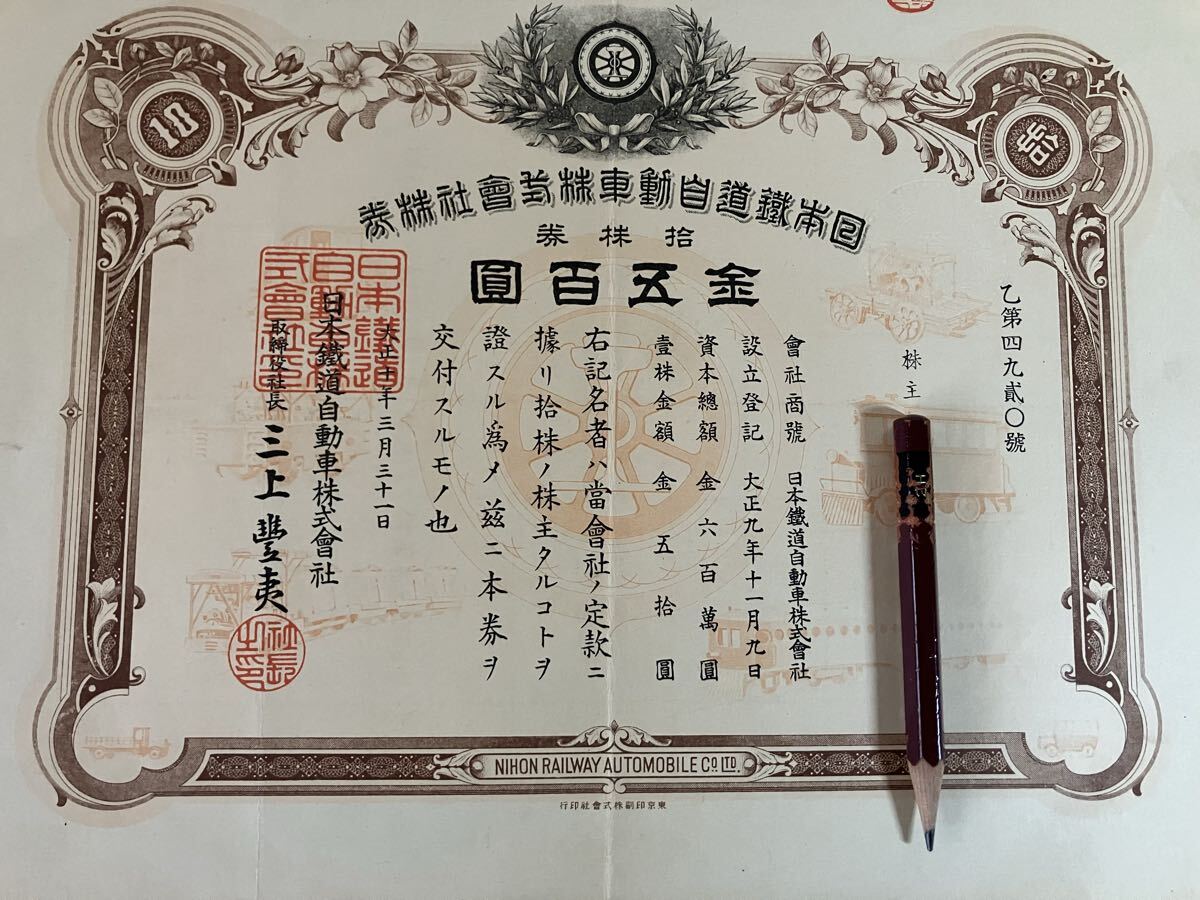 10
拾
日本鐵道自動車株式會社株券
拾株券
金五百圓
乙第四九貳〇號
株主
會社商號 日本鐵道自動車株式會社
設立登記 大正九年十一月九日
資本總額 金六百萬圓
壹株金額 金五拾圓
右記名者ハ當會社ノ定款ニ
據リ拾株ノ株主タルコトヲ
證スル爲メ茲ニ本券ヲ
交付スルモノ也
大正十年三月三十一日
日本鐵道自動車株式會社
取締役社長 三上豐夷
日本鐵道
自動車株
式會社印
社長之印
NIHON RAILWAY AUTOMOBILE Co. LTD.
東京印刷株式會社印行